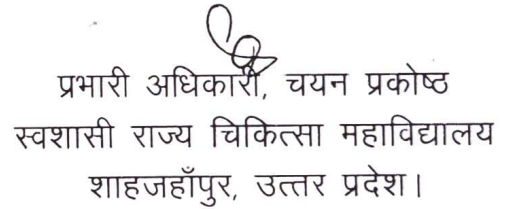 प्रभारी अधिकारी, चयन प्रकोष्ठ
स्वशासी राज्य चिकित्सा महाविद्यालय
शाहजहाँपुर, उत्तर प्रदेश।